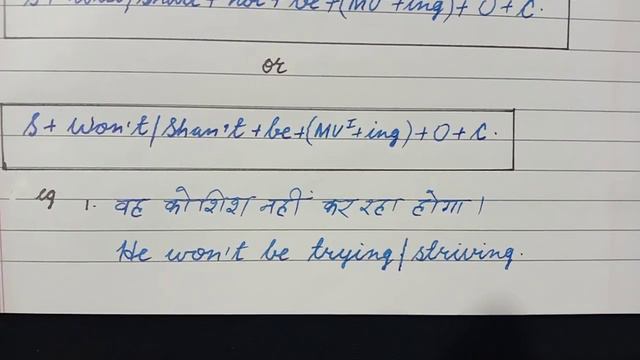 S+ will/shall + not + be +(MV +ing)+ O + C.
or
S+ Won't/Shan't +be+(MVᴵ+ing)+O+C.
eg 1. वह कोशिश नहीं कर रहा होगा।
He won't be trying/striving.